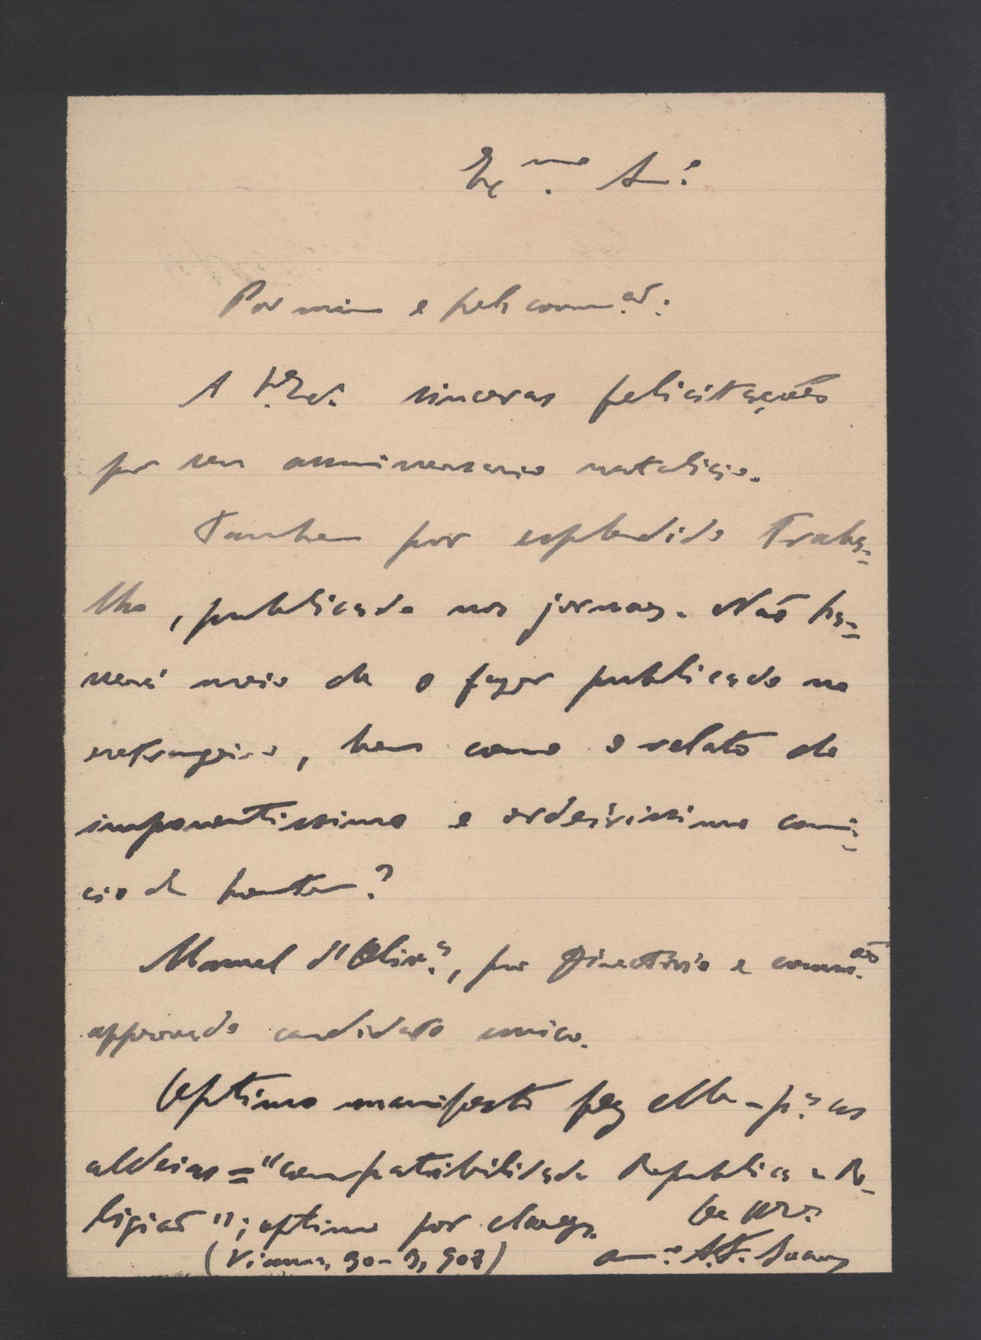 Ex.mo Am.o
Por mim e pela comm.ão:
A V. Ex.ª sinceras felicitações
por seu anniversario natalicio.
Tambem por esplendido traba=
lho, publicado nos jornaes. Não ha=
verá meio de o fazer publicado no
extrangeiro, bem como o relato do
imponentissimo e ordeirissimo comi=
cio de hontem?
Manuel d'Oliv.ª, por Directorio e comm.ão
approvado candidato unico.
Optimo manifesto fez elle - p.ª as
aldeias = "compatibilidade Republica e Re-
ligião"; optimo por clareza.
De V. Ex.ª
(Vianna, 30-3, 908) am.o A. F. Soares